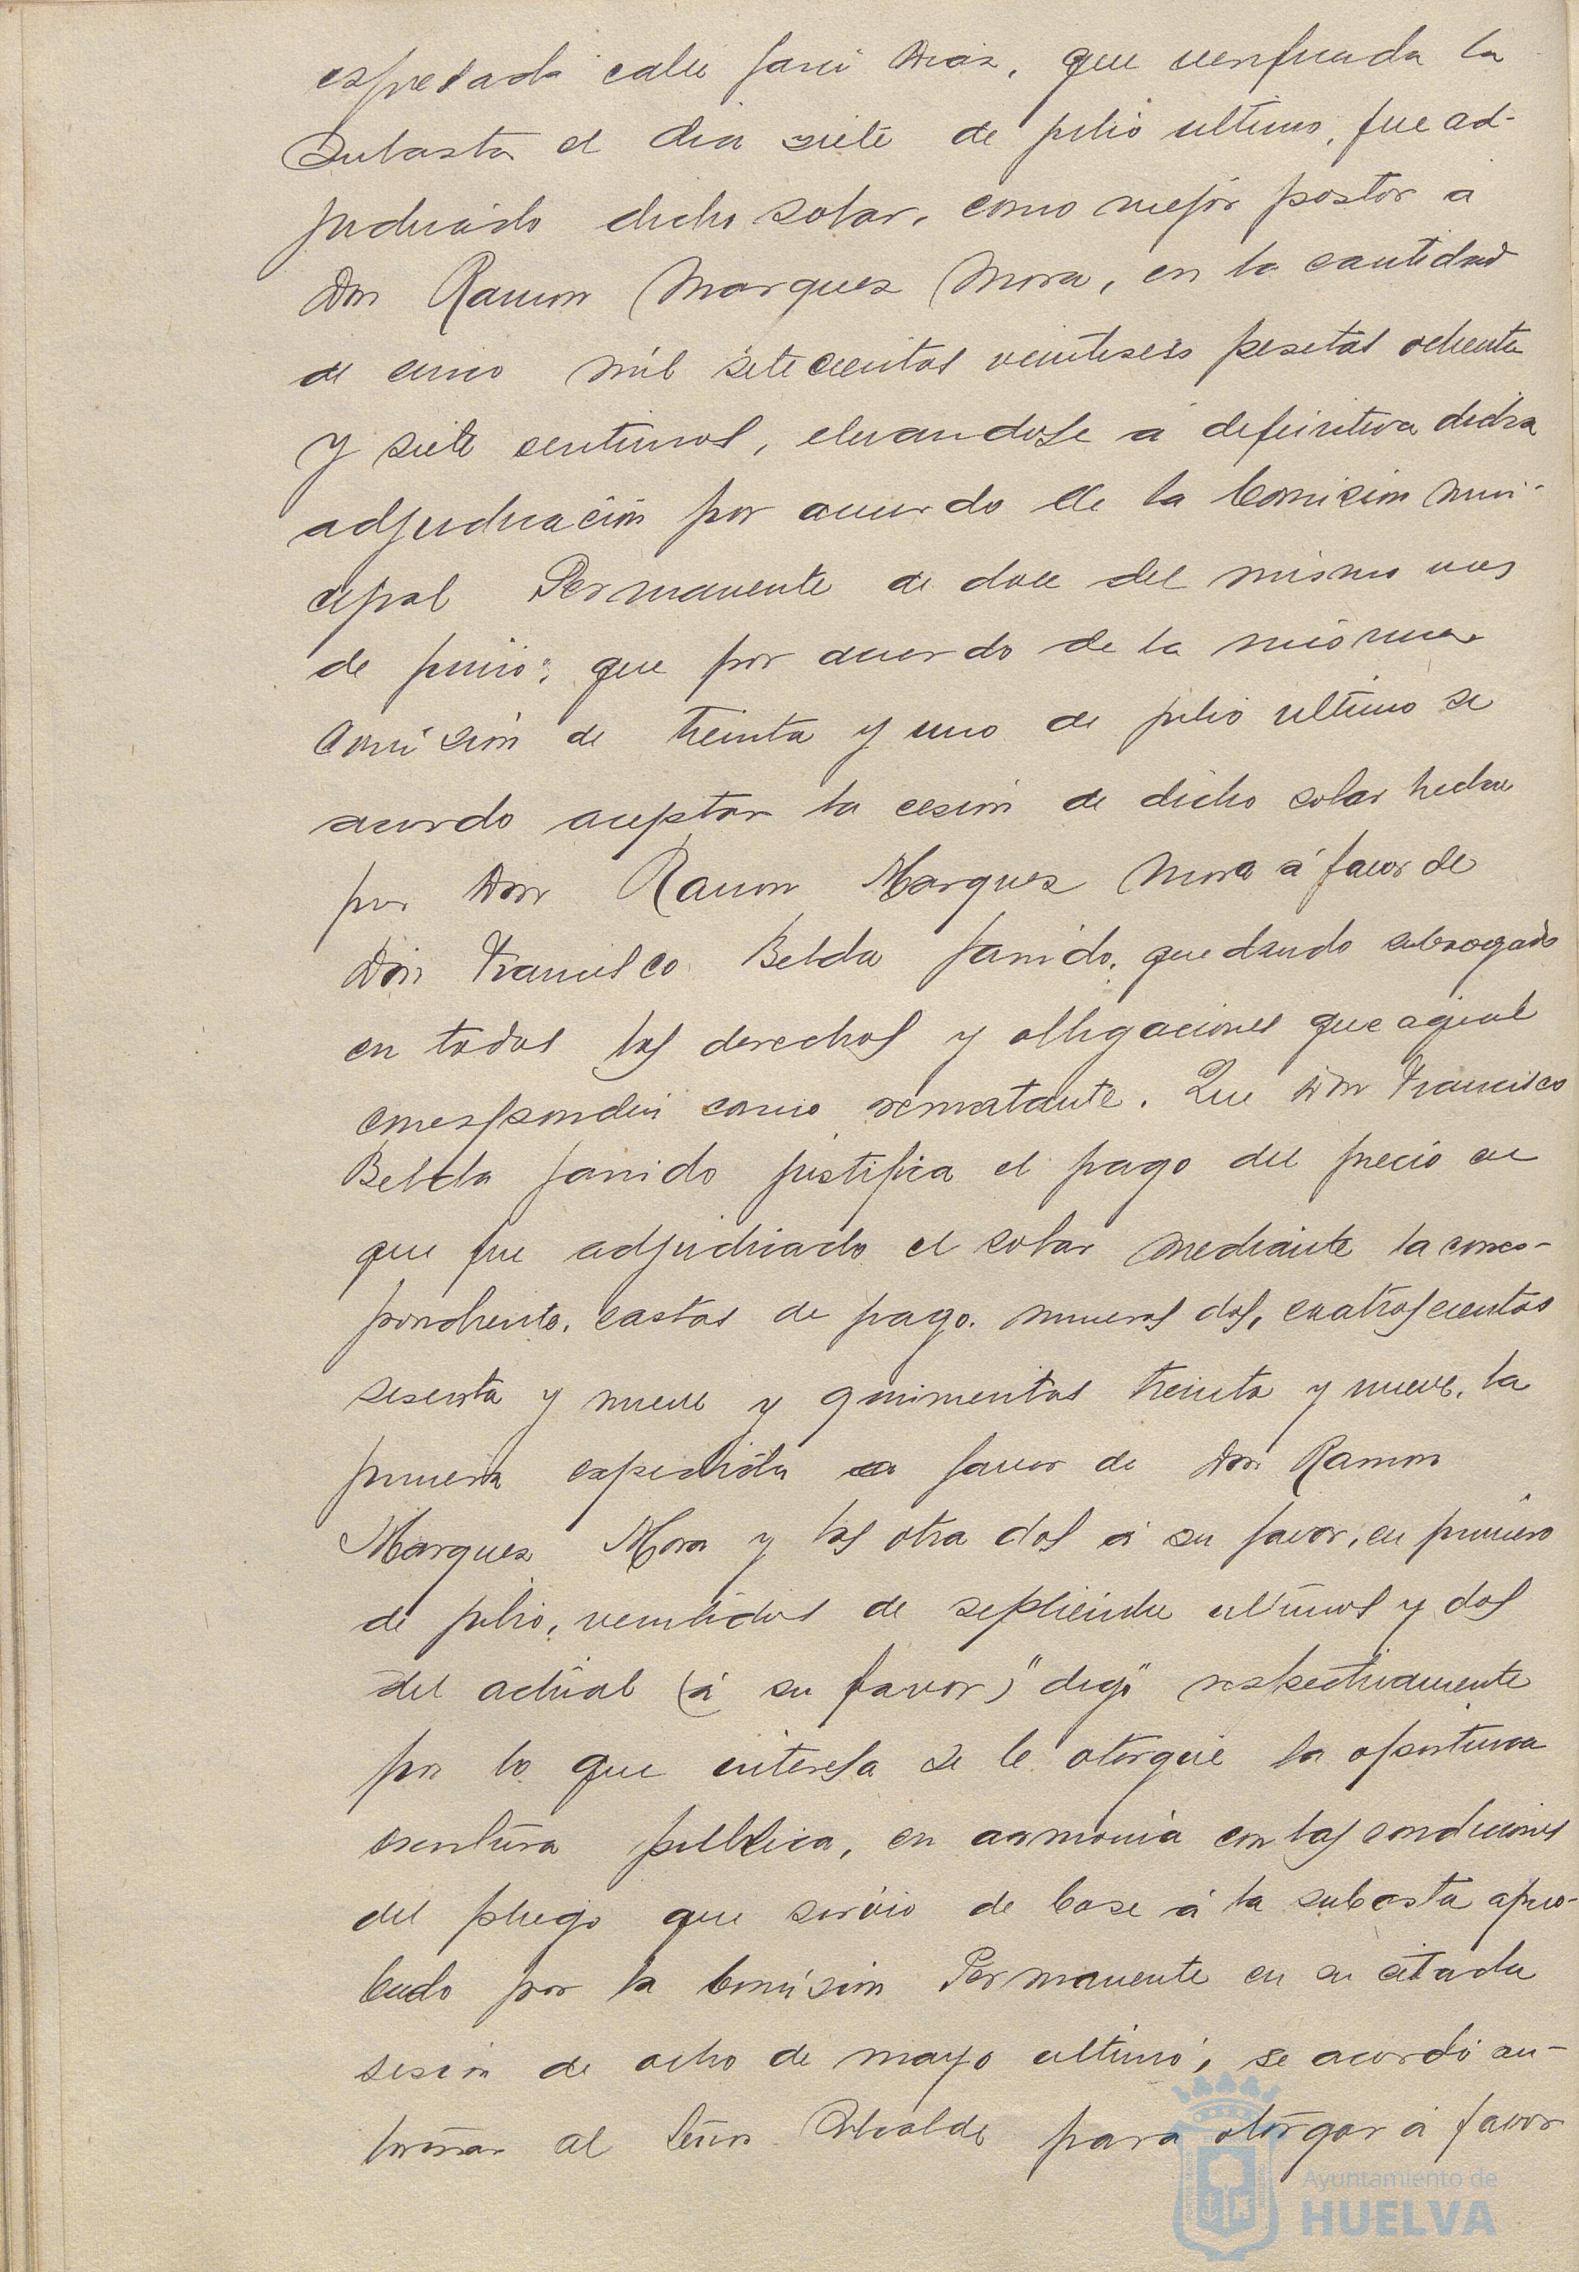 espresada calle Jani Diaz, que verificada la
Subasta el dia siete de julio ultimo, fue ad-
judicado dicho solar, como mejor postor a
Don Ramon Marquez Mora, en la cantidad
de cinco mil setecientas veintiseis pesetas ochenta
y siete centimos, elevandose a definitiva dicha
adjudicación por acuerdo de la Comision muni-
cipal Permanente de doce del mismo mes
de junio; que por acuerdo de la misma
Comisión de treinta y uno de julio ultimo se
acordo aceptar la cesión de dicho solar hecha
por Don Ramon Marquez Mora á favor de
Don Francisco Belda Janido, quedando subrogado
en todos los derechos y obligaciones que aquel
correspondia como rematante. Que Don Francisco
Belda Janido justifica el pago del precio en
que fue adjudicado el solar mediante la corres-
pondiente. cartas de pago. numeros dos, cuatroscientos
sesenta y nueve y quinientos treinta y nueve, la
primera expedida a favor de Don Ramon
Marquez Mora y las otra dos á su favor, en primero
de julio, veintidos de septiembre ultimos y dos
del actual (á su favor) "digo" respectivamente
por lo que interesa se le otorgue la oportuna
escritura publica, en armonia con las condiciones
del pliego que sirvio de base á la subasta apro-
bado por la Comisión Permanente en su citada
sesión de ocho de mayo ultimo, se acordó au-
torizar al Señor Alcalde para otorgar á favor
Ayuntamiento de
HUELVA